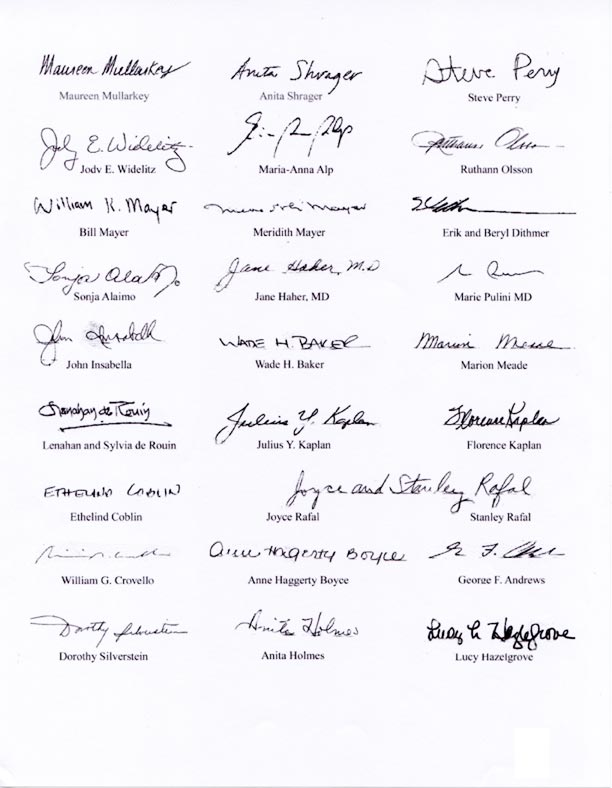 Maureen Mullarkey Anita Shrager Steve Perry
Maureen Mullarkey Anita Shrager Steve Perry
Jody E. Widelitz
Jodv E. Widelitz Maria-Anna Alp Ruthann Olsson
William K. Mayer
Bill Mayer Meridith Mayer Erik and Beryl Dithmer
Sonja Alaimo Jane Haher, M.D
Sonja Alaimo Jane Haher, MD Marie Pulini MD
John Insabella WADE H. BAKER Marion Meade
John Insabella Wade H. Baker Marion Meade
Lenahan de Rouin Julius Y. Kaplan Florence Kaplan
Lenahan and Sylvia de Rouin Julius Y. Kaplan Florence Kaplan
ETHELIND COBLIN Joyce and Stanley Rafal
Ethelind Coblin Joyce Rafal Stanley Rafal
Anne Hagerty Boyce
William G. Crovello Anne Haggerty Boyce George F. Andrews
Dorothy Silverstein Anita Holmes Lucy L Hazlegrove
Dorothy Silverstein Anita Holmes Lucy Hazelgrove